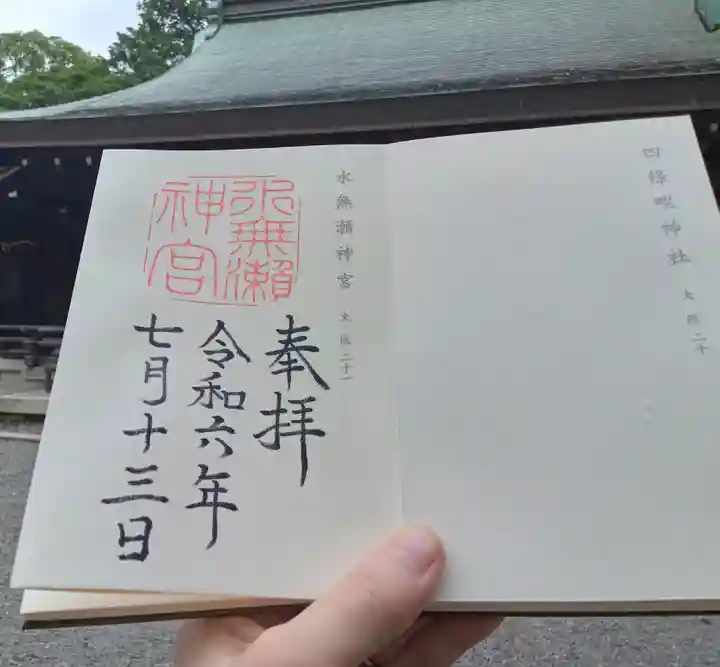 四條畷神社 大阪二十
水無瀬神宮 大阪二十一
水無瀬
神宮
奉拝
令和六年
七月十三日